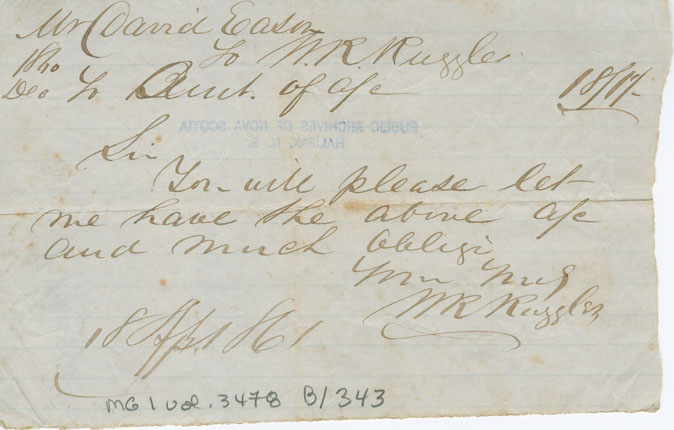 Mr David Eason
To W. R. Ruggles
1860
Dec To Amt. of a/c 18/11
PUBLIC ARCHIVES OF NOVA SCOTIA
HALIFAX, N. S.
Sir
You will please let
me have the above a/c
and much oblige
Your
WR Ruggles
18 Apl 1861
MG 1 vol. 3478 B/343